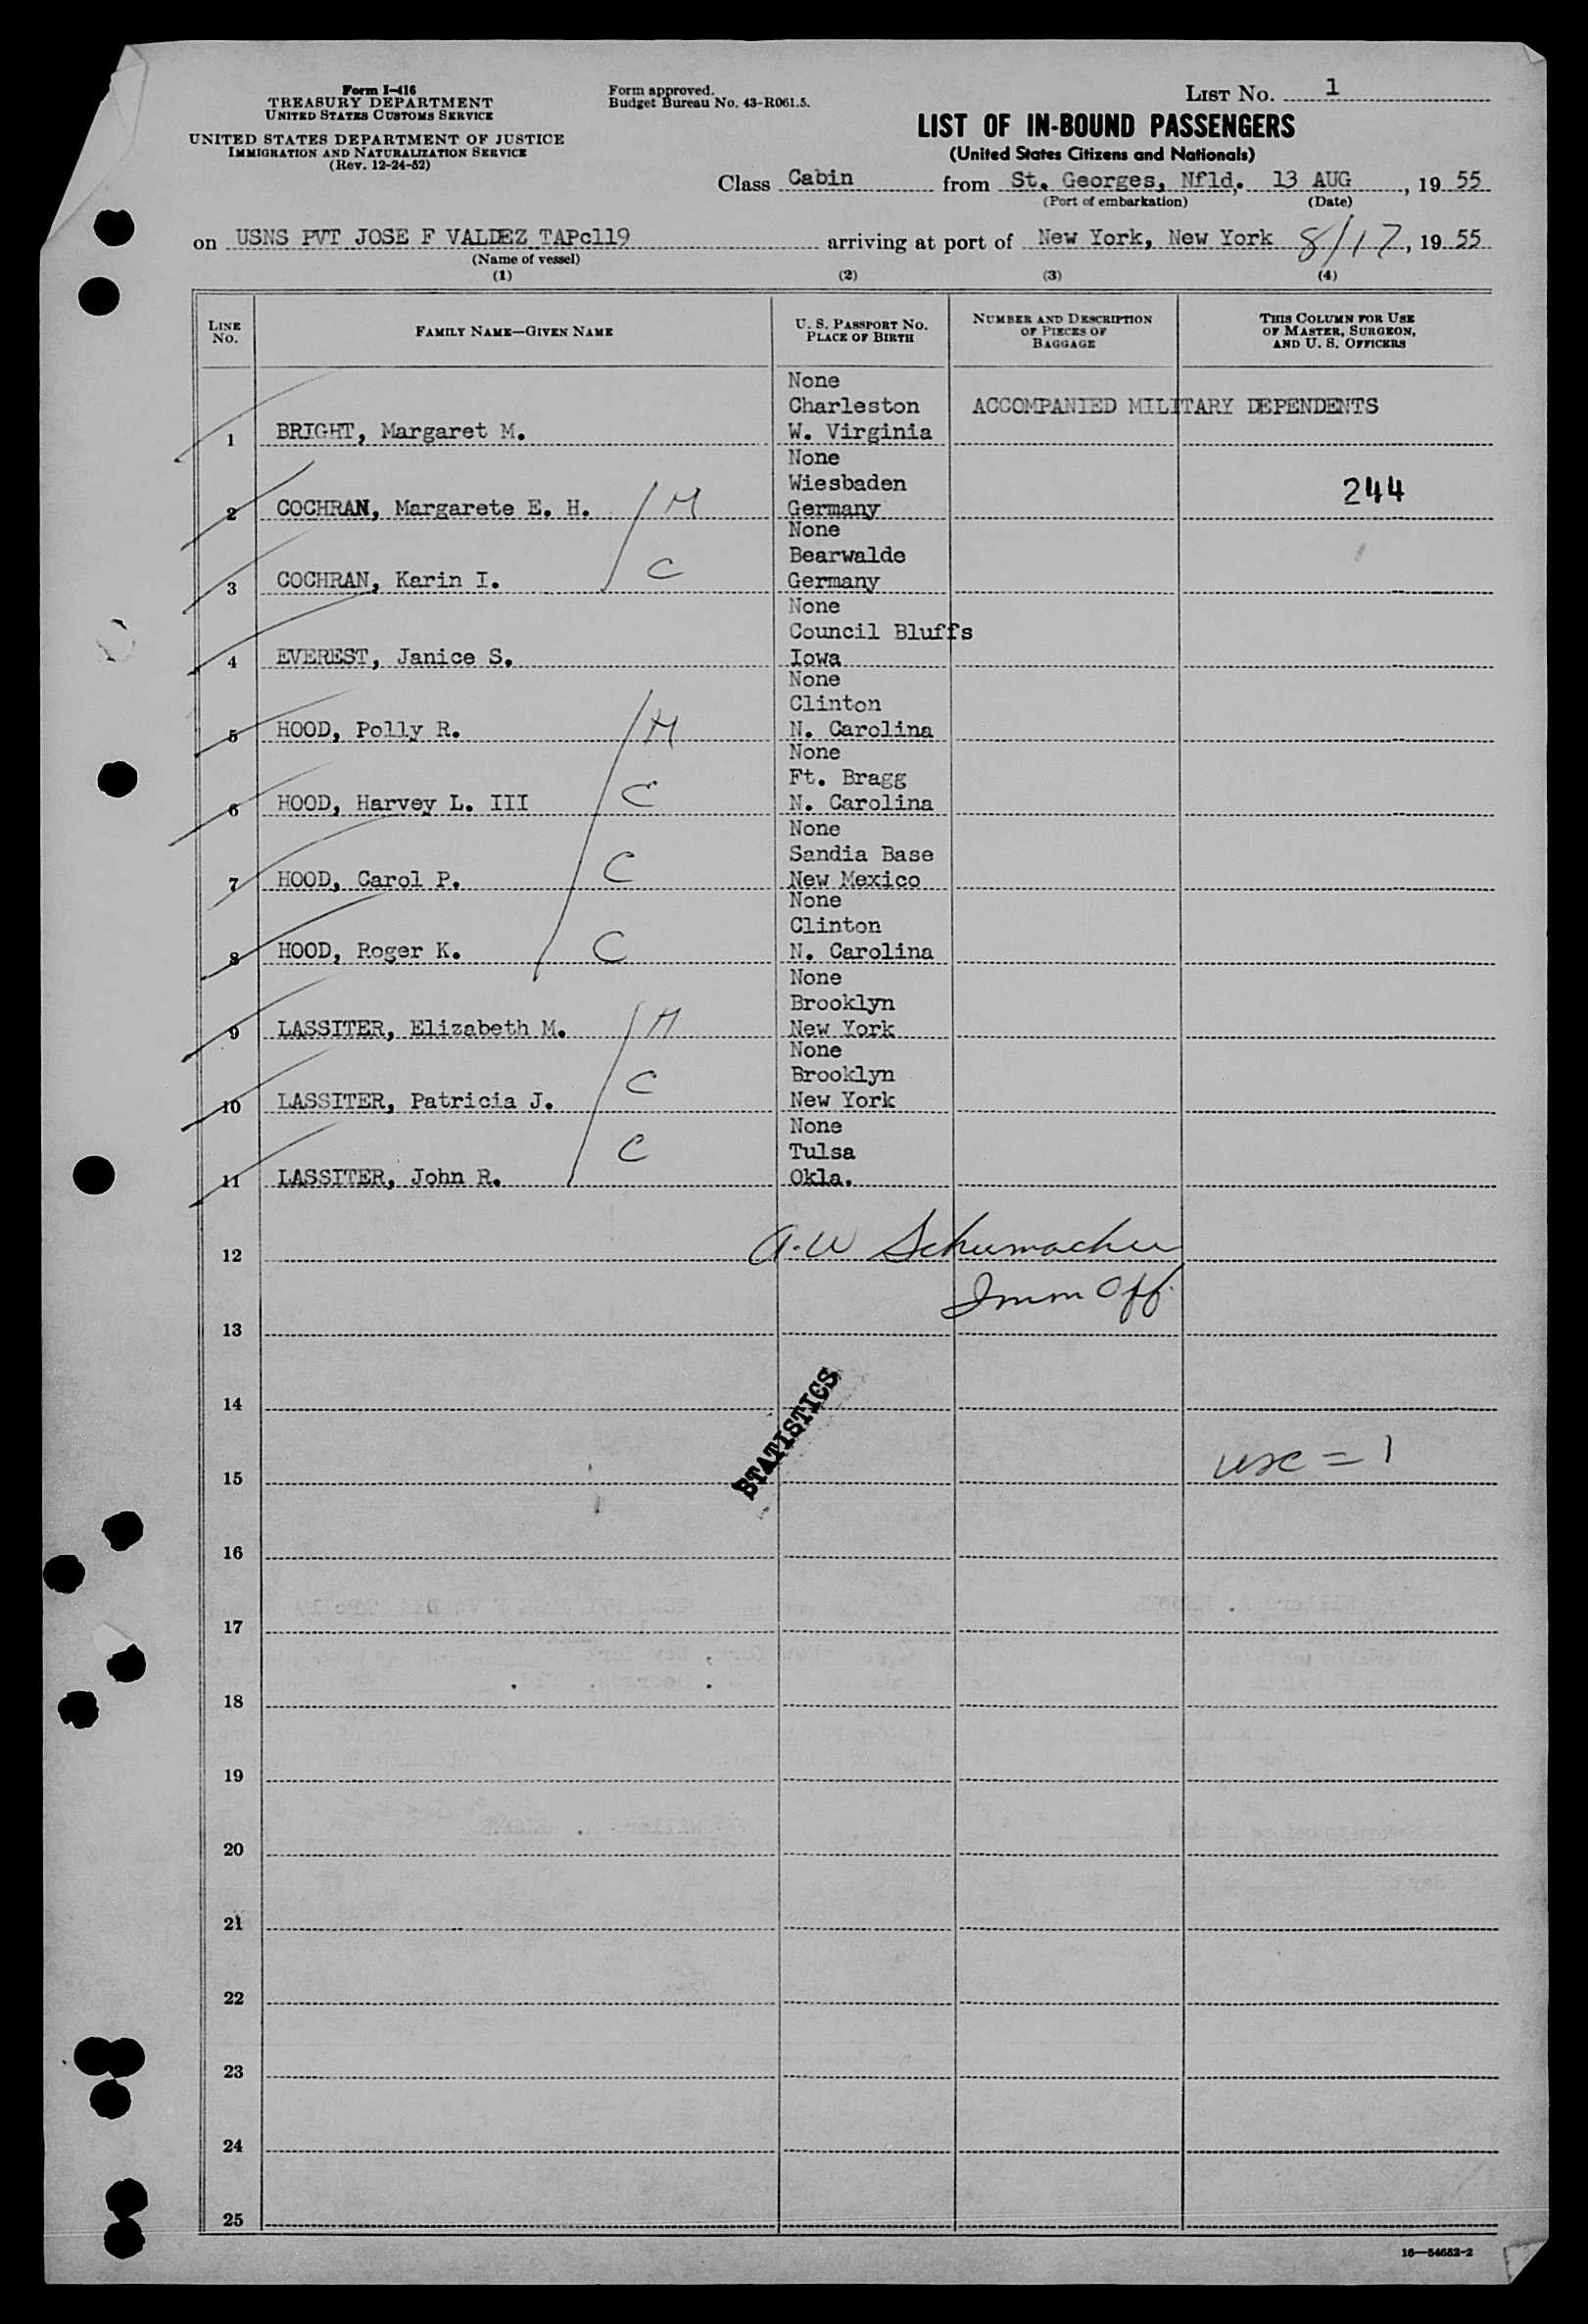 Form I-416
TREASURY DEPARTMENT
UNITED STATES CUSTOMS SERVICE
UNITED STATES DEPARTMENT OF JUSTICE
IMMIGRATION AND NATURALIZATION SERVICE
(Rev. 12-24-52)
Form approved.
Budget Bureau No. 43-R061.5.
LIST NO. 1
LIST OF IN-BOUND PASSENGERS
(United States Citizens and Nationals)
Class Cabin from St. Georges, Nfld. 13 AUG, 19 55
(Port of embarkation) (Date)
on USNS PVT JOSE F VALDEZ TAPc119 arriving at port of New York, New York 8/17, 19 55
(Name of vessel)
(1) (2) (3) (4)
LINE NO.
FAMILY NAME—GIVEN NAME
U. S. PASSPORT NO.
PLACE OF BIRTH
NUMBER AND DESCRIPTION
OF PIECES OF
BAGGAGE
THIS COLUMN FOR USE
OF MASTER, SURGEON,
AND U. S. OFFICERS
None
Charleston ACCOMPANIED MILITARY DEPENDENTS
1 BRIGHT, Margaret M. W. Virginia
None
Wiesbaden 244
2 COCHRAN, Margarete E. H. M Germany
None
Bearwalde
3 COCHRAN, Karin I. C Germany
None
Council Bluffs
4 EVEREST, Janice S. Iowa
None
Clinton
5 HOOD, Polly R. M N. Carolina
None
Ft. Bragg
6 HOOD, Harvey L. III C N. Carolina
None
Sandia Base
7 HOOD, Carol P. C New Mexico
None
Clinton
8 HOOD, Roger K. C N. Carolina
None
Brooklyn
9 LASSITER, Elizabeth M. M New York
None
Brooklyn
10 LASSITER, Patricia J. C New York
None
Tulsa
11 LASSITER, John R. C Okla.
12 A. W Schumacher
Imm Off.
13
14
STATISTICS
15 usc = 1
16
17
18
19
20
21
22
23
24
25
16—54652-2